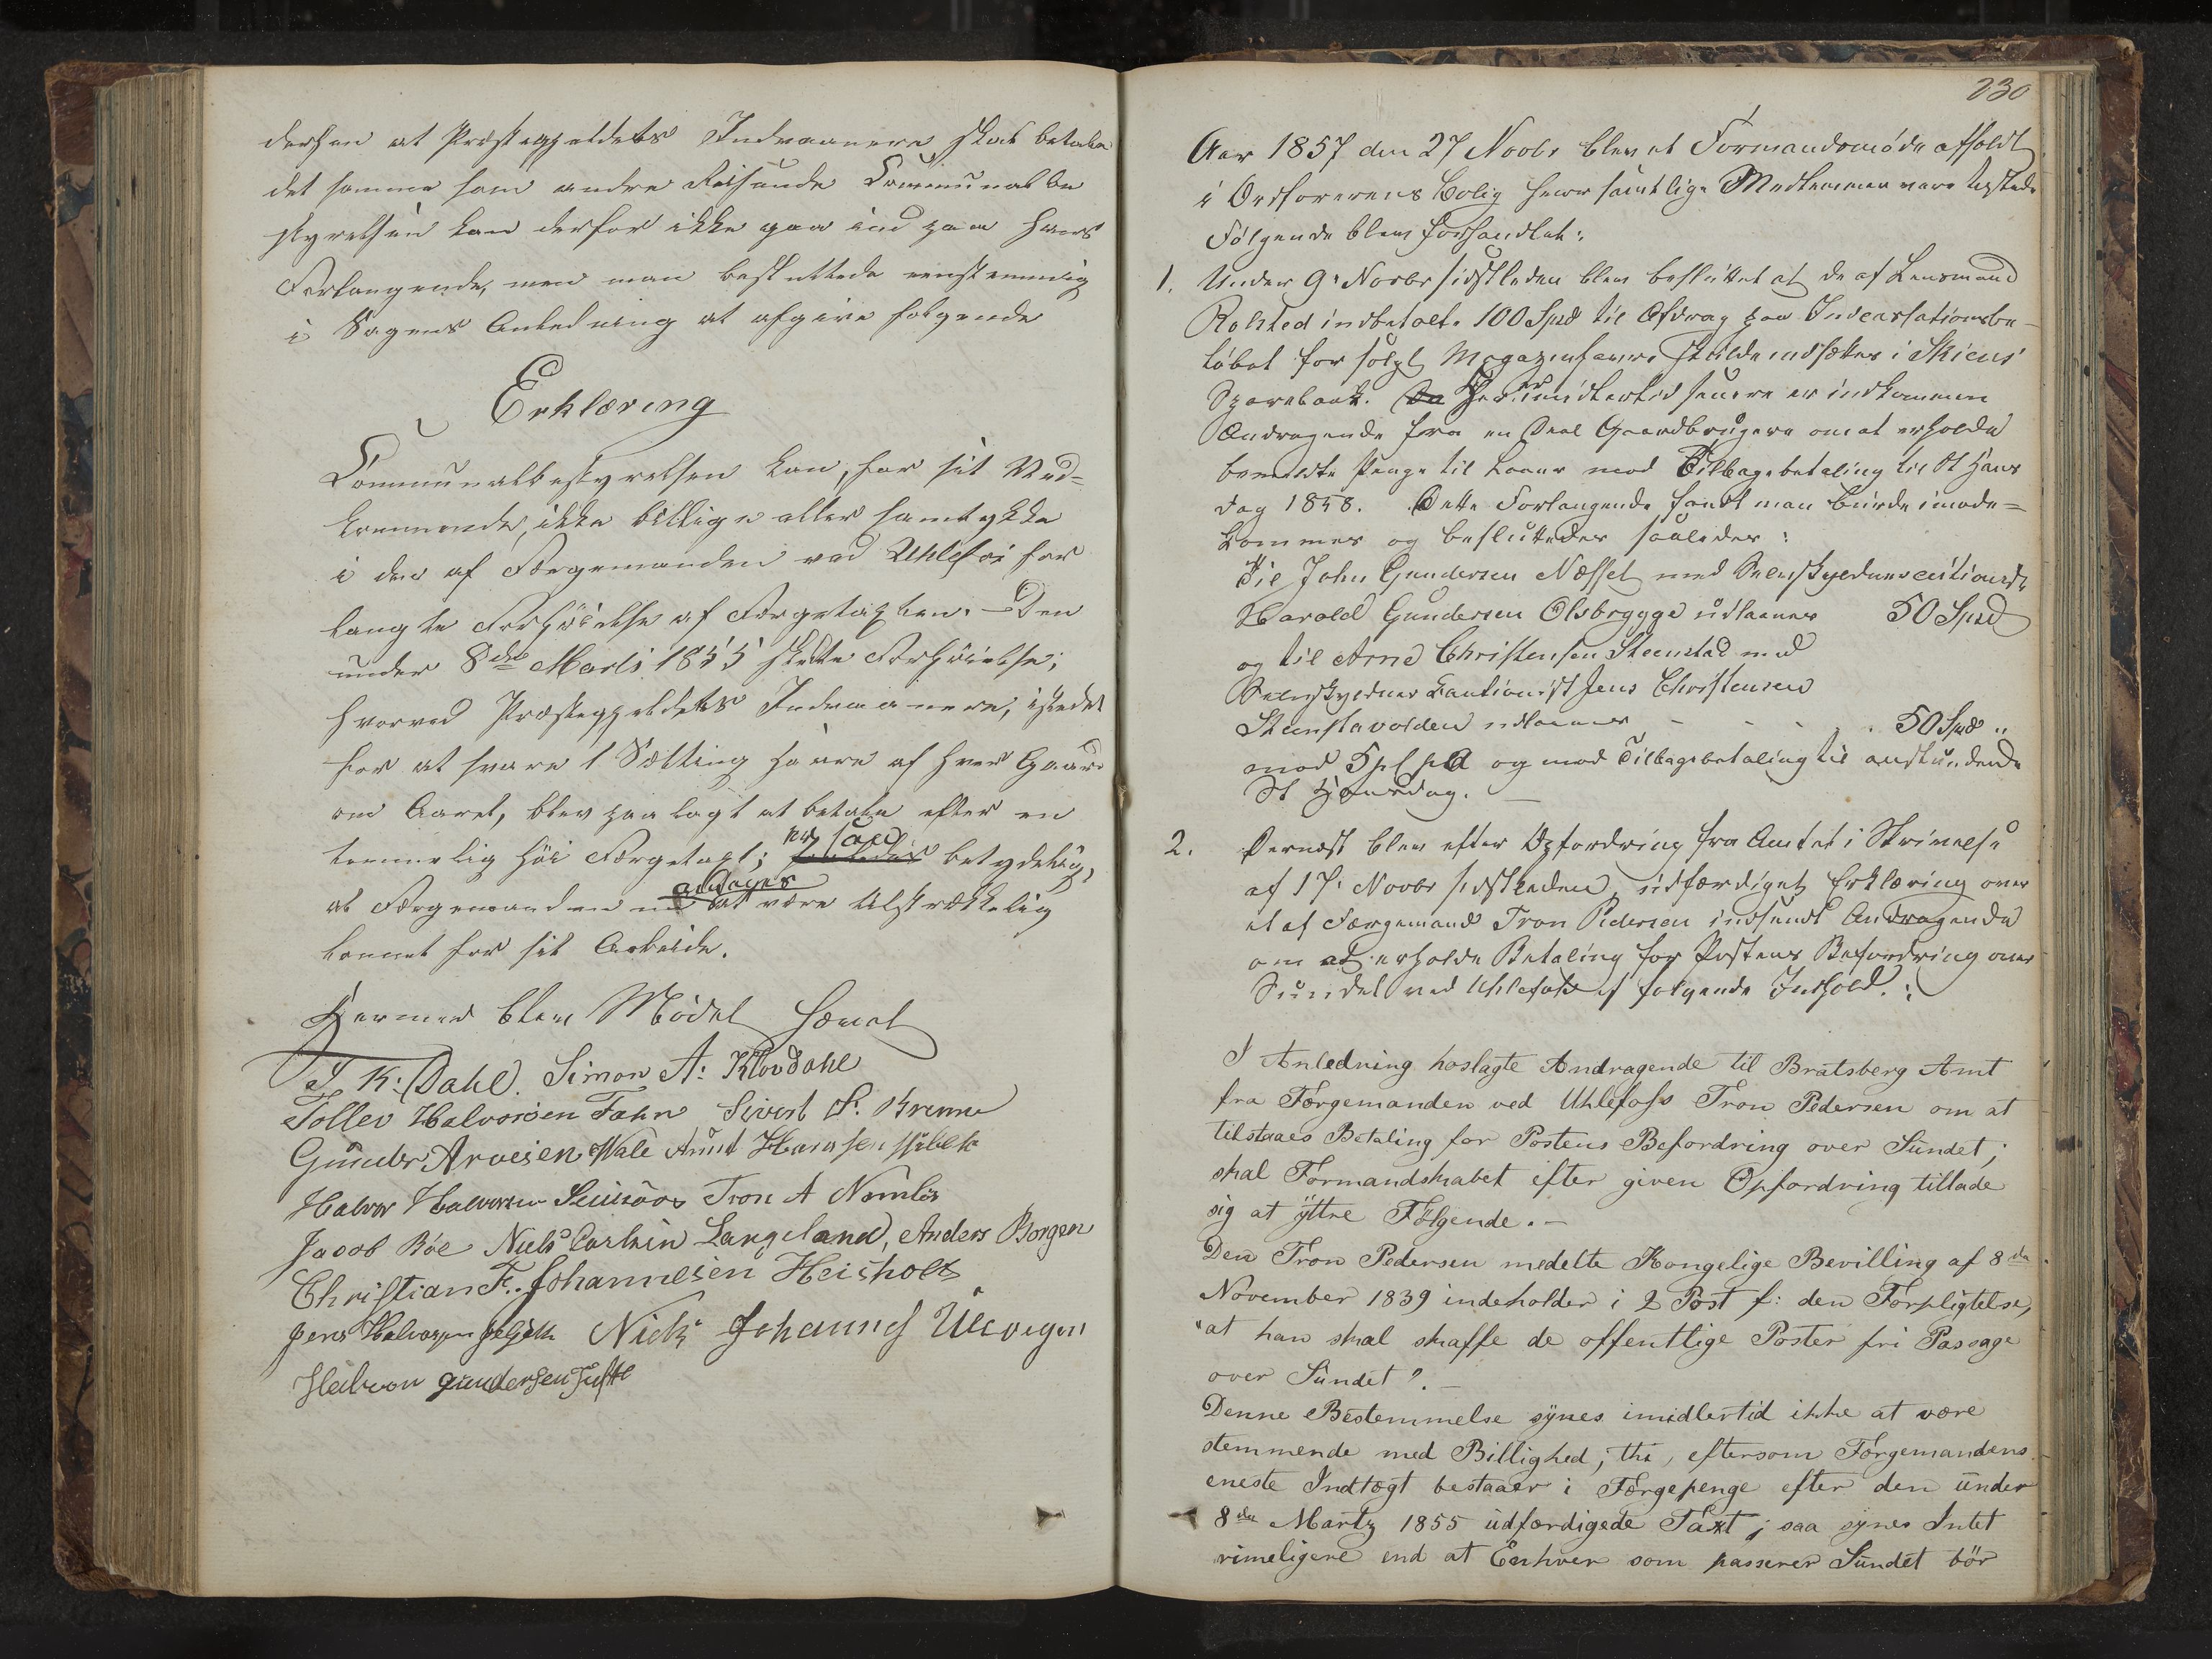 dersen at Præstegjeldets Indvaanere skal betale
det samme som andre Reisende Communalbe
styrelsen kan derfor ikke gaa ind paa hans
Forlangende, men man besluttede eenstemmig
i Sagens Anledning at afgive følgende
Erklæring
Communalbestyrelsen kan, for sit Ved-
kommende, ikke billige eller samtykke
i den af Færgemanden ved Uhlefos for
langte Forhøielse af Færgetaxten. – Den
under 8de Marts 1855 skete Forhøielse;
hvorved Præstegjeldets Indvaanere, istedet
for at svare 1 Sætting Havre af hver Gaard
om Aaret, blev paalagt at betale efter en
temmelig høi Færgetaxt; er saa betydelig,
at Færgemanden maa antages at være tilstrækkelig
lønnet for sit Arbeide.
Hermed blev Mødet hævet
J. K. Dahl. Simon A: Klovdahl
Tollev Halvorsen Fahn Sivert P. Krenne
Gunder Arvesen Wale Amut Hansen
Halvor Halvorsen Tron A Namløs
Jacob Böe Niels Carlsen Langeland, Anders Borgen
Christian F. Johannesen Heisholt
Jens Halvorsen Niels Johannes Ulevegen
Halvor Gundersen
230
Aar 1857 den 27 Novbr blev et Formandsmöde afholdt
i Ordförerens Bolig hvor samtlige Medlemmer vare tilstede
Følgende blev forhandlet:
1. Under 9. Novbr sidstleden blev besluttet at de af Lensmand
Rolsted indbetalte 100 Spd til Afdrag paa Indcassationsbe-
løbet for solgt Magazinhavre skulde indsættes i Skiens
Sparebank. Da Her er imidlertid senere er indkommen
Andragende fra en Deel Gaardbrugere om at erholde
bemeldte Penge til Laans mod Tilbagebetaling til St Hans
dag 1858. Dette Forlangende fandt man burde imøde-
kommes og besluttedes saaledes:
Til John Gundersen Næsset med Selvskyldnercautionist
Harald Gundersen Olsbrygge udlaanes 50 Spd
og til Arne Christensen Steenstad med
Selvskyldner Cautionist Jens Christensen
Steenstavolden udlaanes - - - 50 Spd „
mod 5 pC p.a og mod Tilbagebetaling til anstundende
St Hansdag. –
2. Dernæst blev efter Opfordring fra Amtet i Skrivelse
af 17. Novbr sidstleden, udfærdiget Erklæring over
et af Færgemand Tron Pedersen indsendt Andragende
om at erholde Betaling for Postens Befordring over
Sundet ved Uhlefoss af følgende Indhold.:
I Anledning hoslagte Andragende til Bratsberg Amt
fra Færgemanden ved Uhlefoss Tron Pedersen om at
tilstaaes Betaling for Postens Befordring over Sundet;
skal Formandskabet efter given Opfordring tillade
sig at yttre Følgende. –
Den Tron Pedersen meddelte Kongelige Bevilling af 8de
November 1839 indeholder i 2 Post f: den Forpligtelse,
"at han skal skaffe de offentlige Poster fri Passage
over Sundet". –
Denne Bestemmelse synes imidlertid ikke at være
stemmende med Billighed; thi, eftersom Færgemandens
eneste Indtægt bestaaer i Færgepenge efter den under
8de Martz 1855 udfærdigede Taxt; saa synes Intet
rimeligere end at Enhver som passerer Sundet bör